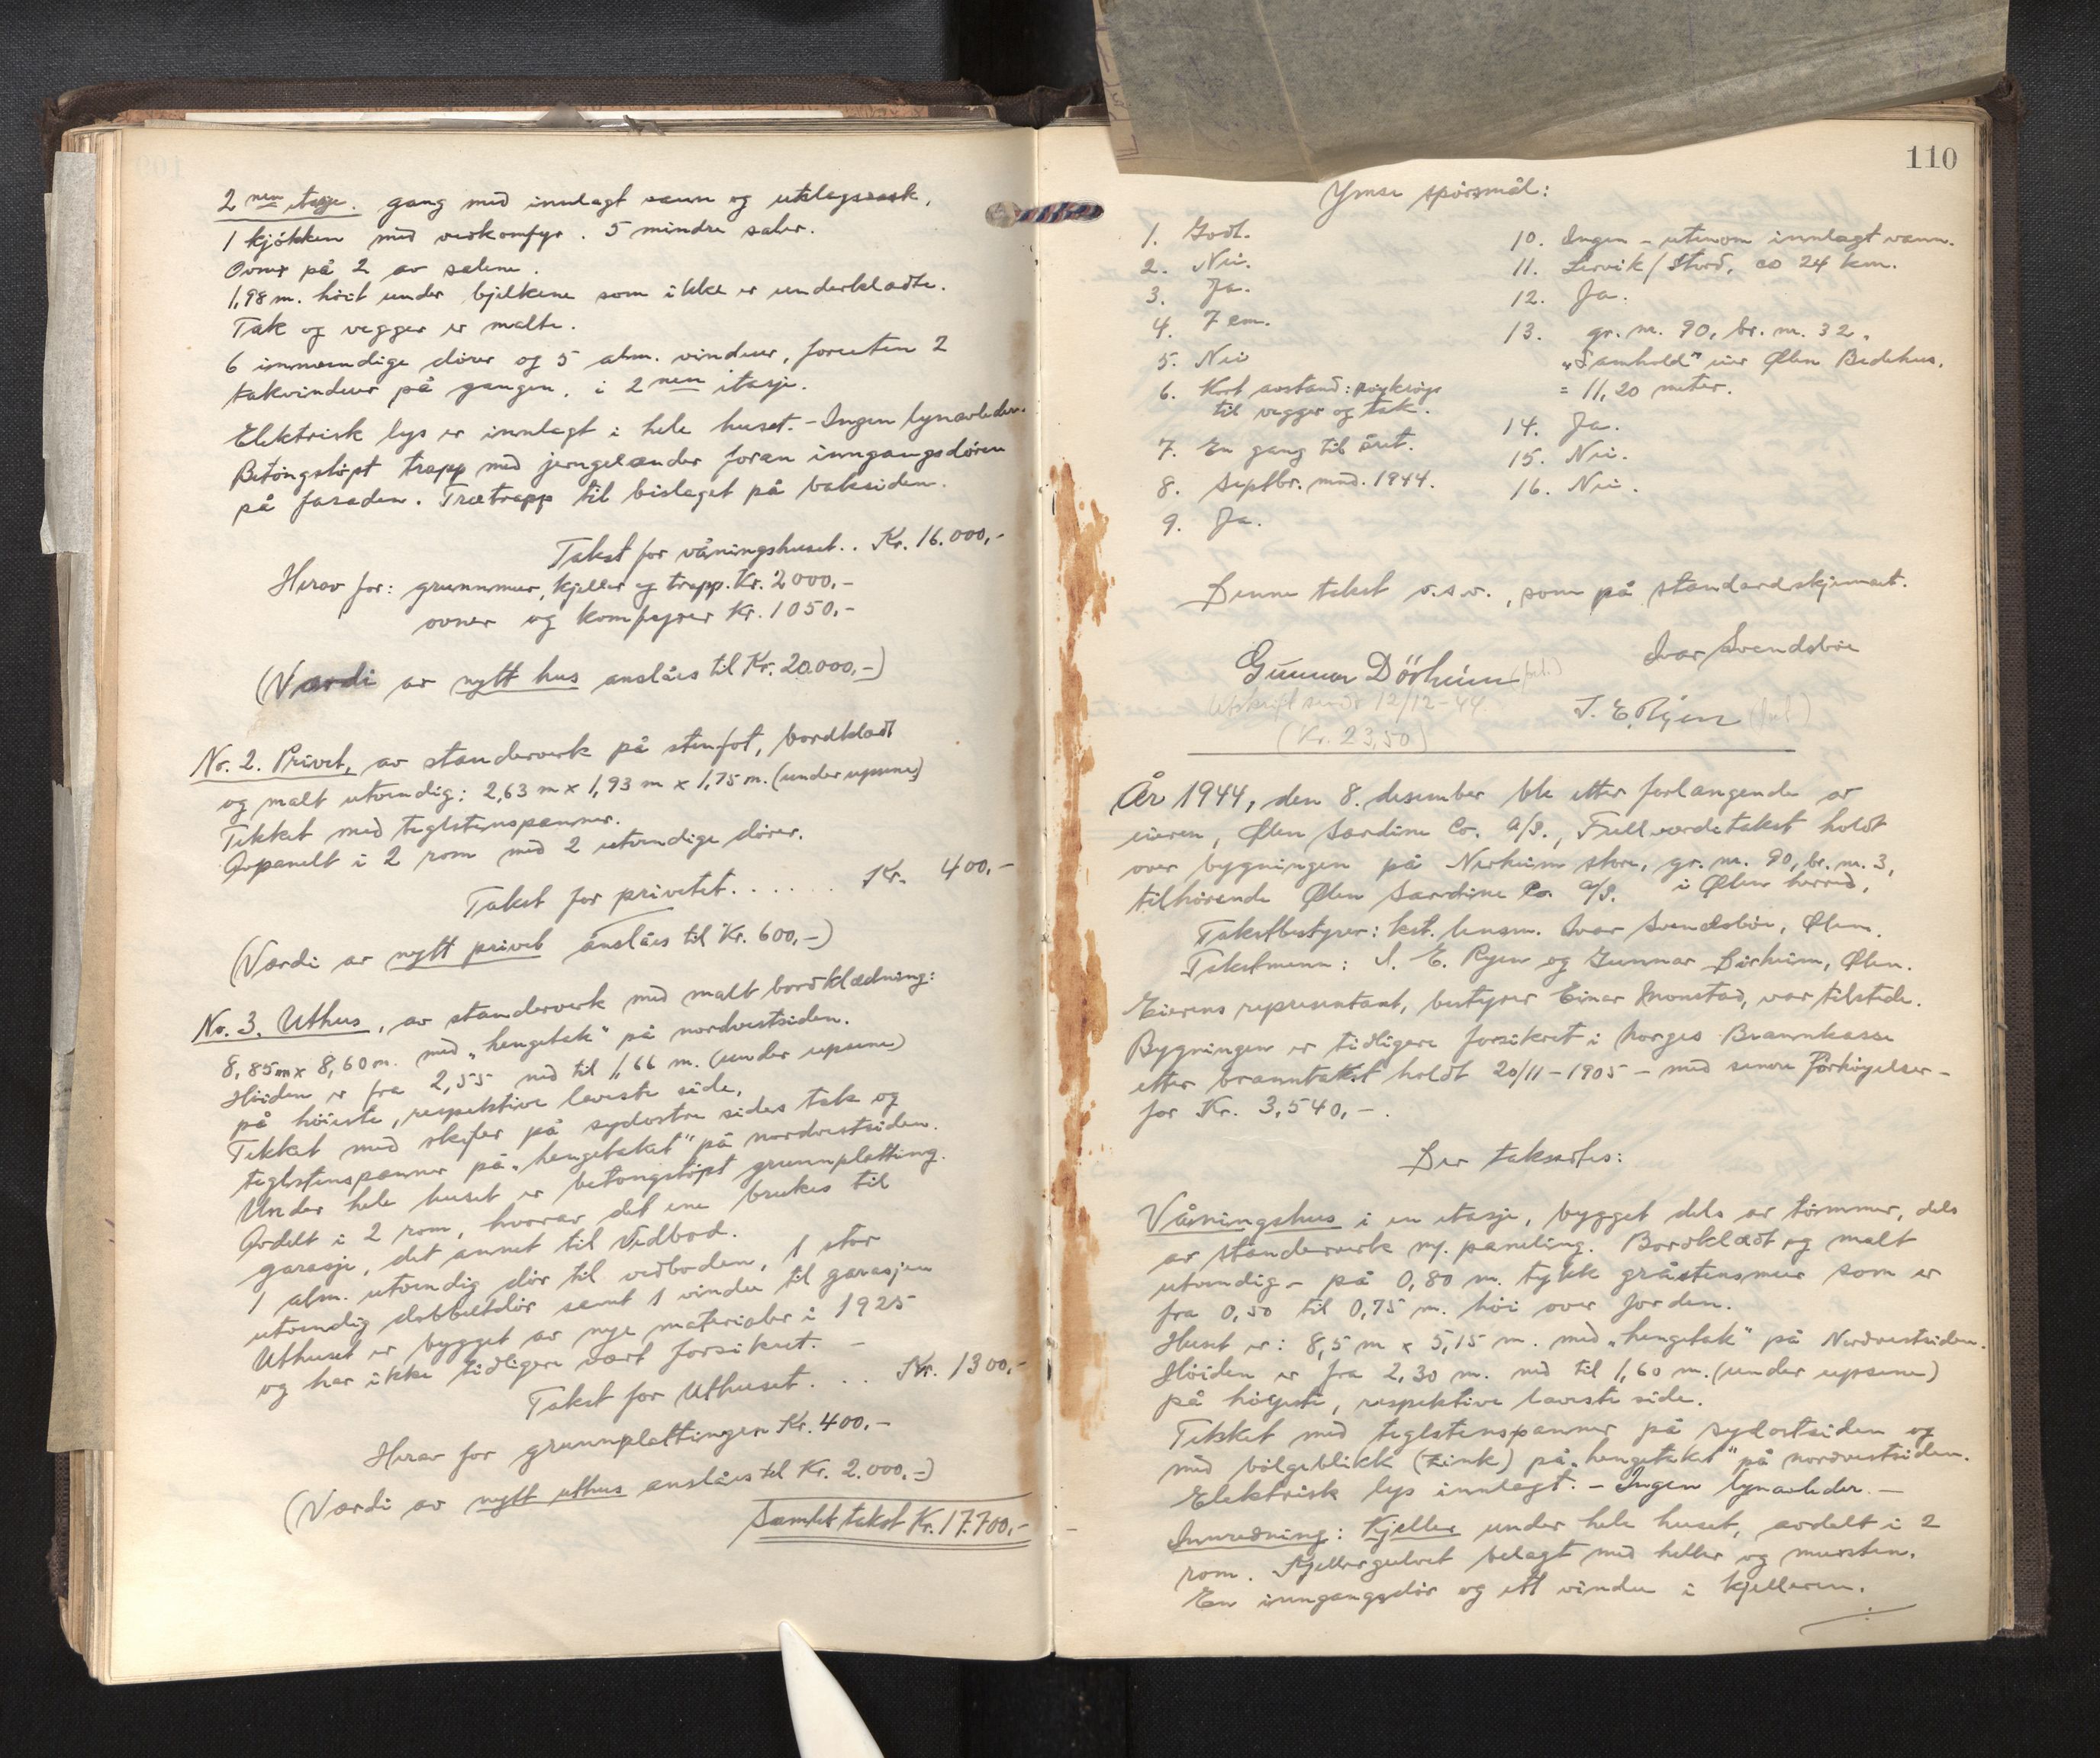 2 nen etasje. gang med innlagt vann og utslagsvask,
1 kjökken med vedkomfyr. 5 mindre saler.
Ovner på 2 av salene.
1,98 m. höit under bjelkene som ikke er underklædte.
Tak og vegger er malte.
6 innvendige dörer og 5 alm. vinduer, foruten 2
takvinduer på gangen, i 2 nen etasje.
Elektrisk lys er innlagt i hele huset. - Ingen lynavleder.
Betongstöpt trapp med jerngelænder foran inngangsdören
på fasaden. Trætrapp til bislaget på baksiden.
Takst for våningshuset . . Kr. 16.000,-
Herav for: grunnmur, kjeller og trapp. Kr. 2000,-
ovner og komfyrer Kr. 1050,-
(Værdi av nytt hus anslåes til Kr. 20.000,-)
Nr. 2. Privet, av standerverk på stenfot, bordklædt
og malt utvendig: 2,63 m x 1,93 m x 1,75 m. (under upsene)
Tekket med teglstenspanner.
Avpanelt i 2 rom med 2 utvendige dörer.
Takst for privetet . . . . . . Kr. 400,-
(Værdi av nytt privet anslåes til Kr. 600,-)
No. 3. Uthus, av standerverk med malt bordklædning:
8,85 m x 8,60 m. med „hengetak“ på nordvestsiden.
Höiden er fra 2,55 ned til 1,66 m. (under upsene)
på höieste, respektive laveste side.
Tekket med skifer på sydostre sides tak og
teglstenspanner på „hengetaket“ på nordvestsiden.
Under hele huset er betongstöpt grunnplatting.
Avdelt i 2 rom, hvorav det ene brukes til
garasje, det annet til vedbod.
1 alm. utvendig dör til vedboden, 1 stor
utvendig dobbeltdör samt 1 vindu til garasjen
Uthuset er bygget av nye materialer i 1925
og har ikke tidligere vært forsikret. -
Takst for Uthuset . . . Kr. 1300,-
Herav for grunnplattingen Kr. 400,-
(Værdi av nytt uthus anslåes til Kr. 2.000,-)
Samlet takst Kr. 17.700,-
110
Ymse spörsmål:
1. Godt.
2. Nei.
3. Ja.
4. 7 cm.
5. Nei
6. Kort avstand: röykrör
til vegger og tak.
7. En gang til året.
8. Septbr. mnd. 1944.
9. Ja.
10. Ingen - utenom innlagt vann.
11. Lervik/Stord, ca 24 km.
12. Ja.
13. gr. nr. 90, br. nr. 32,
„Samhold“ eier Ølen Bedehus.
= 11,20 meter.
14. Ja.
15. Nei.
16. Nei.
Denne takst o.s.v., som på standardskjemaet.
Ivar Svendsbøe
Gunnar Dörheim
Utskrift sendt 12/12-44.
J. E. Ryen
(Kr. 23,50)
År 1944, den 8. desember ble etter forlangende av
eieren, Ølen Sardine Co. A/S., Fullverdetakst holdt
over bygningen på Nerheim store, gr. nr. 90, br. nr. 3,
tilhörende Ølen Sardine Co. A/S. i Ølen herred.
Takstbestyrer: kst. lensm. Ivar Svendsböe, Ølen.
Takstmenn: J. E. Ryen og Gunnar Dörheim, Ølen.
Eierens representant, bestyrer Einar Monstad, var tilstede.
Bygningen er tidligere forsikret i Norges Brannkasse
etter branntakst holdt 20/11-1905 - med senere forhöyelser -
for Kr. 3,540,-.
Der takseres:
Våningshus i en etasje, bygget dels av tömmer, dels
av standerverk m/. paneling. Bordklædt og malt
utvendig - på 0,80 m. tykk gråstensmur som er
fra 0,50 til 0,75 m. höi over jorden.
Huset er: 8,5 m x 5,15 m. med „hengetak“ på Nordvestsiden.
Höiden er fra 2,30 m. ned til 1,60 m. (under upsene)
på höyeste, respektive laveste side.
Tekket med teglstenspanner på sydostsiden og
med bölgeblikk (zink) på „hengetaket“ på nordvestsiden.
Elektrisk lys innlagt. - Ingen lynavleder. -
Innredning: Kjeller under hele huset, avdelt i 2
rom. Kjellergulvet belagt med heller og mursten.
En inngangsdör og ett vindu i kjelleren.